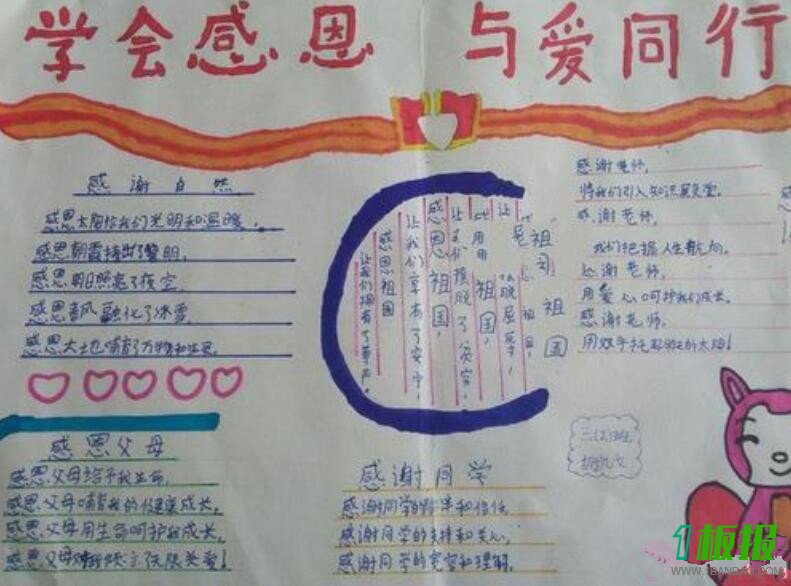 学会感恩 与爱同行
感谢自然
感恩太阳给我们光明和温暖。
感恩朝霞捧出了黎明,
感恩朝日照亮了夜空,
感恩春风融化了冰雪,
感恩大地哺育了万物和生灵。
感恩父母
感恩父母给予我生命,
感恩父母哺育我的健康成长,
感恩父母用生命呵护我成长,
感恩父母对我倾注了无限关爱!
感恩祖国
让我们拥有了尊严。
感恩祖国,
让我们享有了安宁,
感恩祖国,
让我们摆脱了贫穷,
祖国,
脱屈辱,
祖国
感谢同学
感谢同学的和信任,
感谢同学的支持和关心,
感谢同学的宽容和理解。
感谢老师,
将我们引入知识殿堂。
感谢老师,
我们把握人生航向。
感谢老师,
用爱心呵护我们成长。
感谢老师,
用双手托起的太阳!
三(2)班
板报